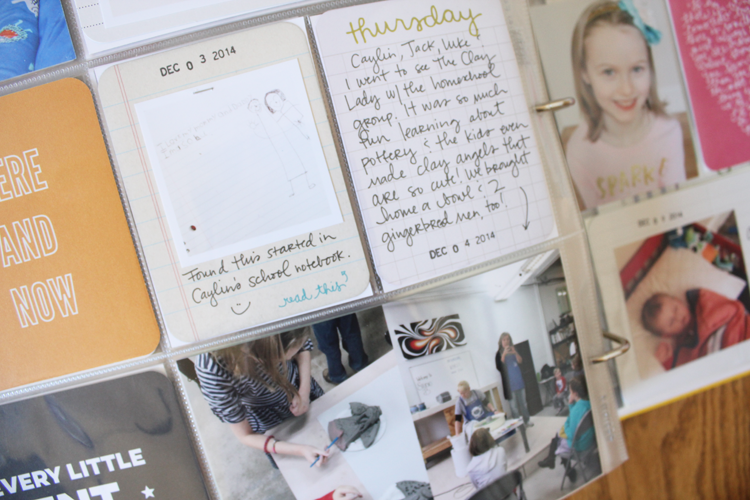 DEC 0 3 2014
Found this started in
Caylin's school notebook.
read this
thursday
Caylin, Jack, Luke &
I went to see the Clay
Lady w/ the homeschool
group. It was so much
fun learning about
pottery & the kids even
made clay angels that
are so cute! We brought
home a bowl & 2
gingerbread men, too!
DEC 0 4 2014
ERE
AND
NOW
EVERY LITTLE
ENT
SPARK!
2014